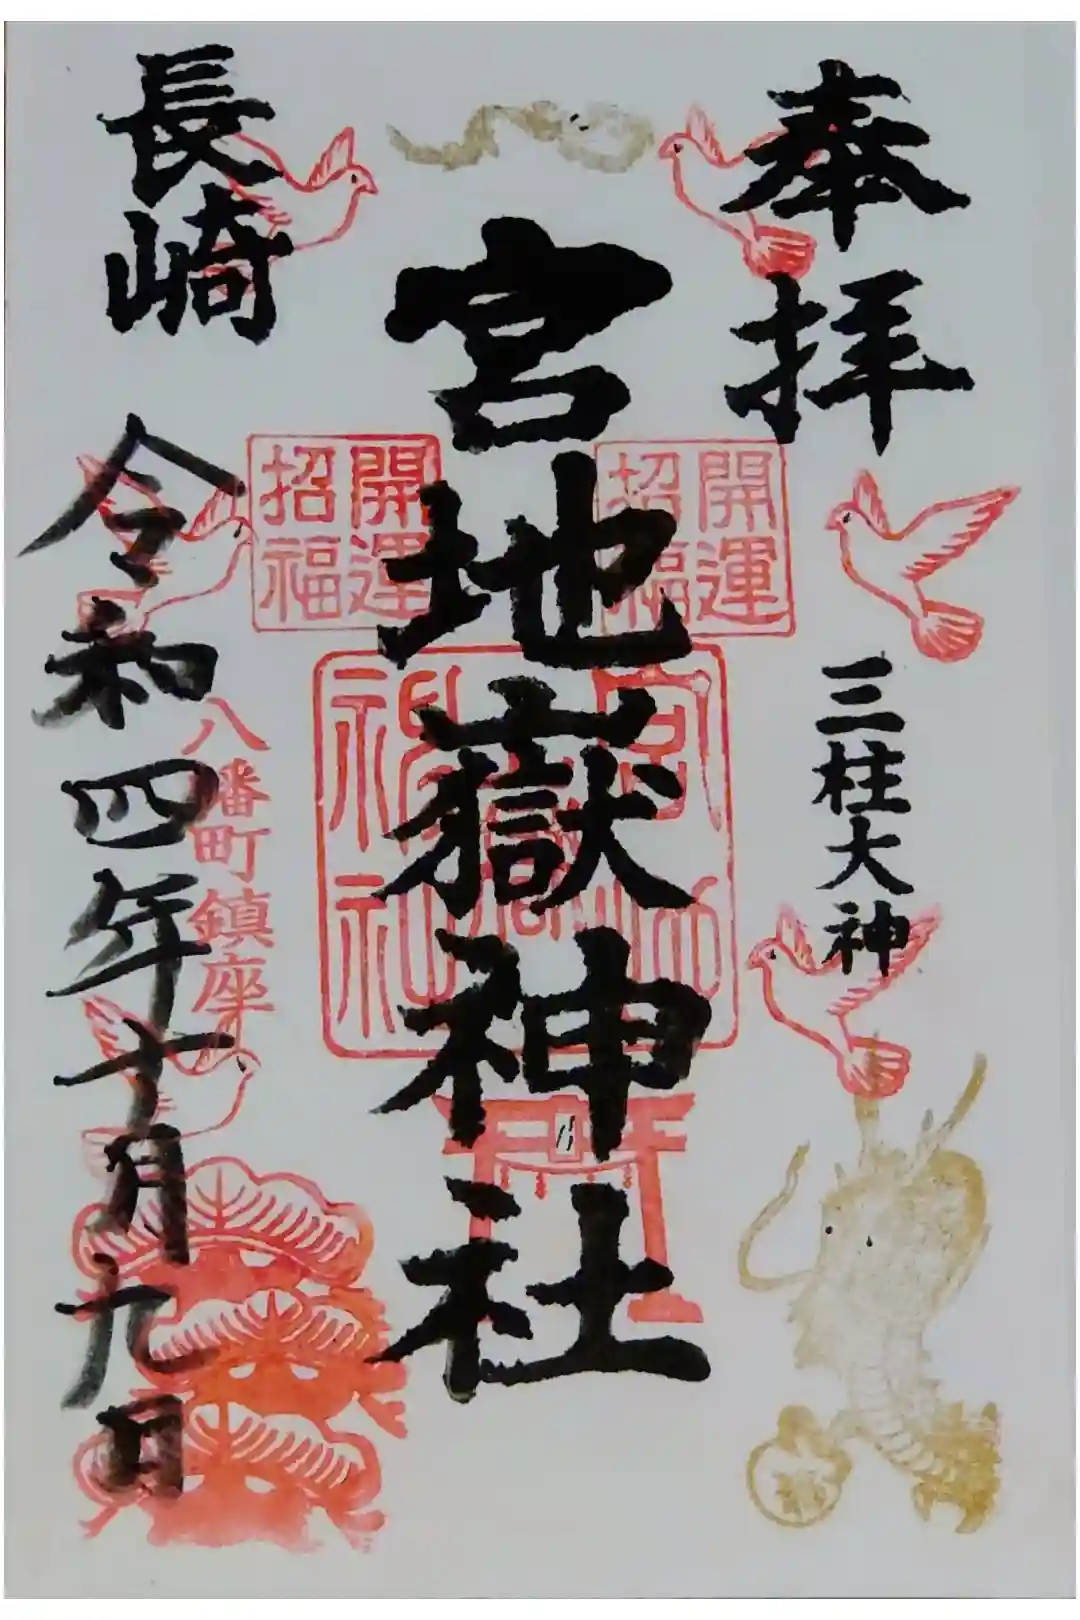 奉拝
三柱大神
開運
招福
宮地嶽神社
開運
招福
長崎
八幡町鎮座
令和四年十月九日